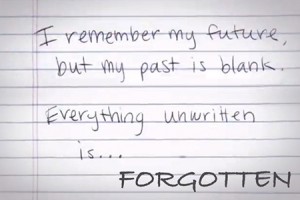 I remember my future,
but my past is blank.
Everything unwritten
is...
FORGOTTEN